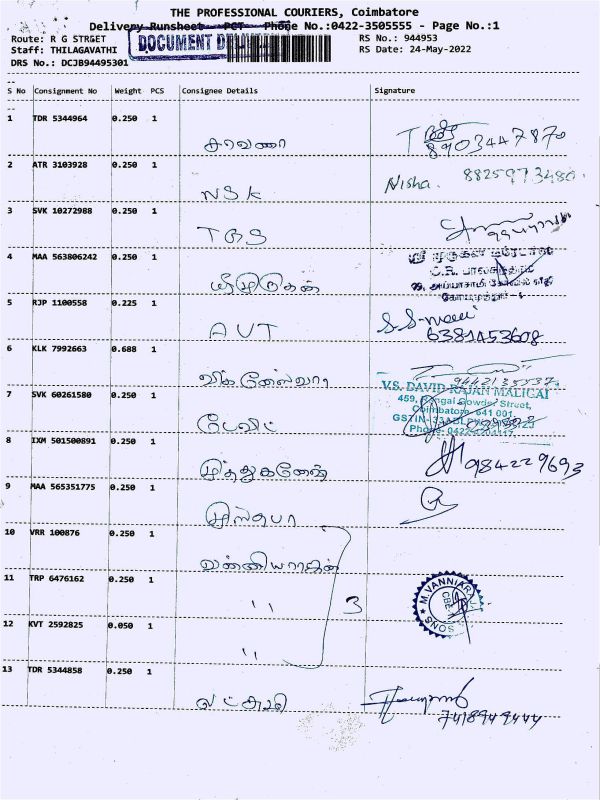 THE PROFESSIONAL COURIERS, Coimbatore
Delivery Runsheet - PCT - Phone No.:0422-3505555 - Page No.:1
Route: R G STREET
DOCUMENT
RS No.: 944953
Staff: THILAGAVATHI
RS Date: 24-May-2022
DRS No.: DCJB94495301
S No Consignment No Weight PCS Consignee Details Signature
1 TDR 5344964 0.250 1
8903447870
சரவணா
2 ATR 3103928 0.250 1
Nisha. 8825973480
NSK
3 SVK 10272988 0.250 1
TBS
4 MAA 563806242 0.250 1
ஸ்ரீ முருகன்
ஸ்ரீமுருகன்
5 RJP 1100558 0.225 1
AVT
6381453608
6 KLK 7992663 0.688 1
விக்னேஸ்வரா
9442135537
7 SVK 60261580 0.250 1
V.S. DAVID RAJAN MALIGAI
459, Rangai Gowder Street,
Coimbatore - 641 001.
டேவிட்
8 IXM 501500891 0.250 1
முத்துகணேஷ்
984229693
9 MAA 565351775 0.250 1
முஸ்தபா
10 VRR 100876 0.250 1
வன்னியராஜன்
11 TRP 6476162 0.250 1
" 3
M.VANNIARAJ
SONS
CBE
12 KVT 2592825 0.050 1
"
13 TDR 5344858 0.250 1
லட்சுமி
7418949444